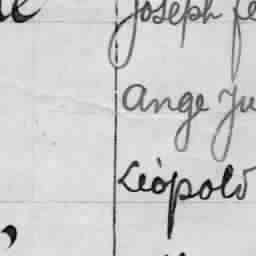 Joseph
Ange Ju
Léopold